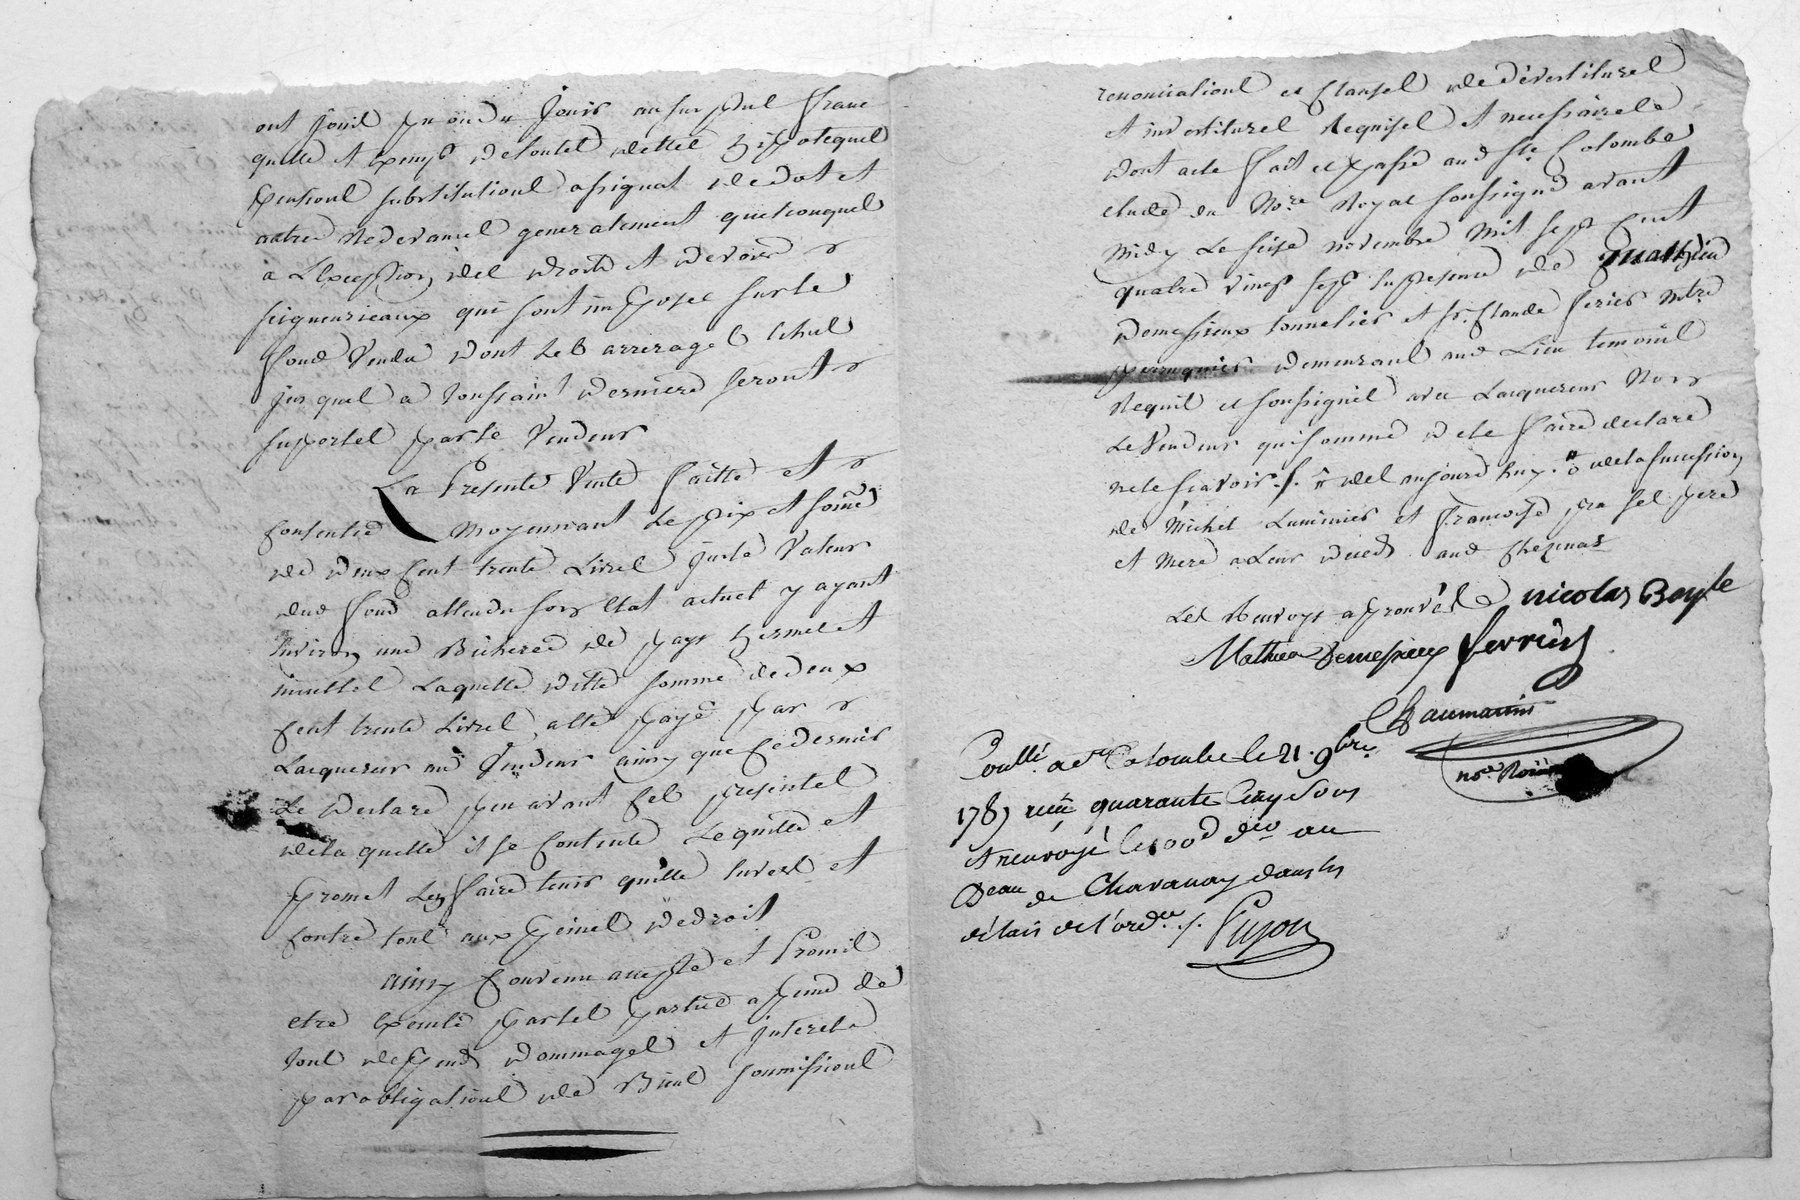 ont joui pu ou du jouir au surplus franc
quitte et exempt de toutes dettes hipoteques
pensions substitutions assignat de dot et
autre redevances generalement quelconques
a l'exception des droits et devoirs
seigneurieaux qui sont imposes sur le
fond vendu dont les arrerages echus
jusques a toussaint derniere seront
suportes par le vendeur
La presente vente faitte et
consentie moyennant le prix et some
de deux cent trente livres juste valeur
dud fond attendu son etat actuel y ayant
environ une bicheree de pays hermes et
inuttes laquelle ditte somme de deux
cent trente livres, a ete payé par
l'acquereur aud vendeur ainsy que ce dernier
le declare peu avant ces presentes
de la quelle il se contente le quitte et
promet l'en faire tenir quitte envers et
contre tous aux peines de droit
ainsy convenu accepté et promis
etre executé par les parties a peine de
tous depends dommages et interets
par obligations de biens soumissions
renonciations et clauses de devestitures
et investitures requises et necessaires
dont acte fait et passé aud Ste Colombe
etude du nore royal soussigné avant
midy le seize novembre mil sept cent
quatre vingt sept en presence de Mathieu
Demessieux tonnelier et sr. Claude ferier mtre
perruquier demeurant aud lieu temoins
requis et soussignés avec l'acquereur non
le vendeur qui sommé de le faire declare
ne le scavoir ./. des aujourd'huy. de la succession
de Michel Luminier et francoise ses pere
et mere a leur deceds aud
Les renvoys aprouvés nicolas Boyle
Mathieu Demessieux ferrier
Chaumartin
nore Royal
Conllé a Ste Colombe le 21. 9bre
1787 reçu quarante cinq sous
et renvoyé le 100d dro au
Beau de Chavanay dans les
delais de l'ordce ./. Pujon